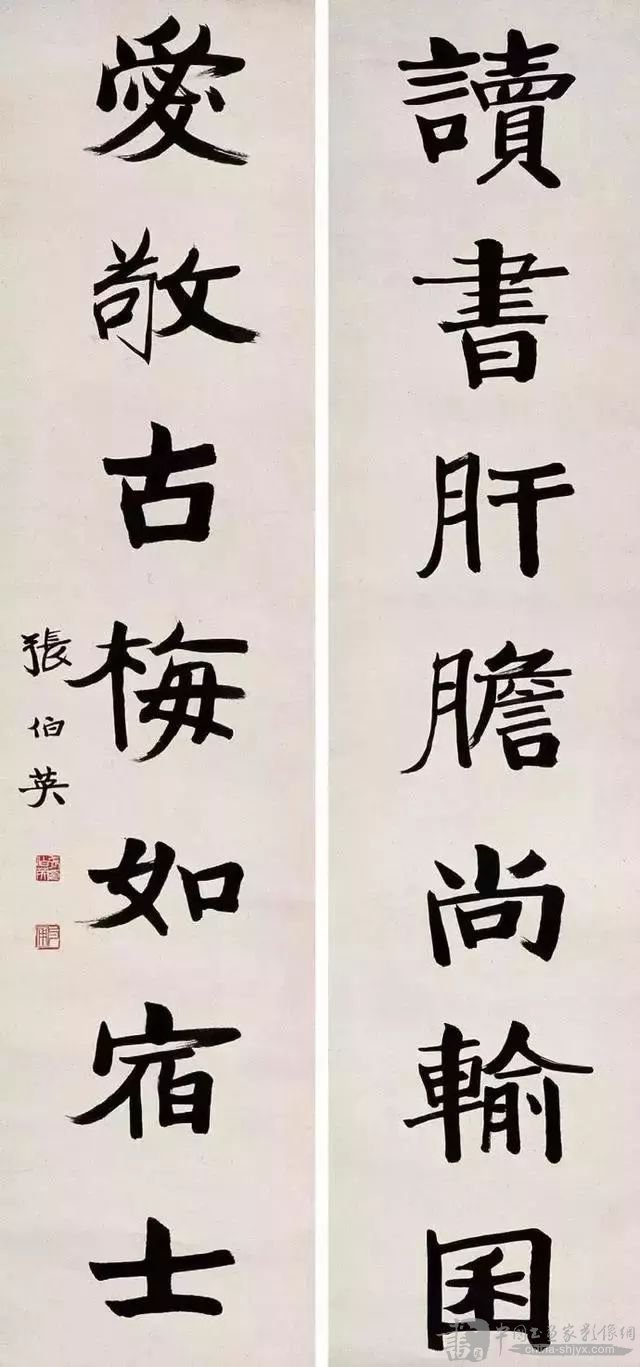 讀書肝膽尚輪囷
愛敬古梅如宿士
張伯英
中国书画家影像網
china-shjyx.com